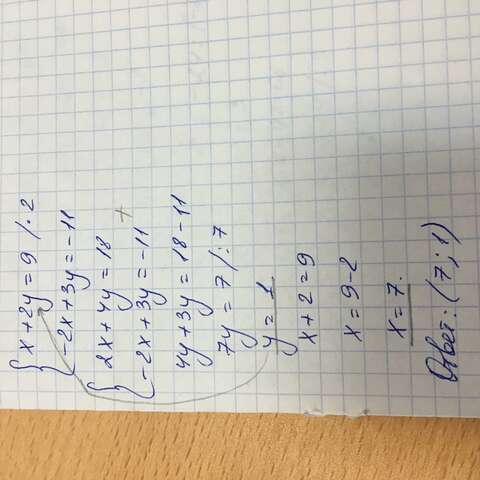 { x + 2y = 9 /·2
{ -2x + 3y = -11
{ 2x + 4y = 18
+
{ -2x + 3y = -11
4y + 3y = 18 - 11
7y = 7 /:7
y = 1
x + 2 = 9
x = 9 - 2
x = 7.
Ответ: (7; 1)